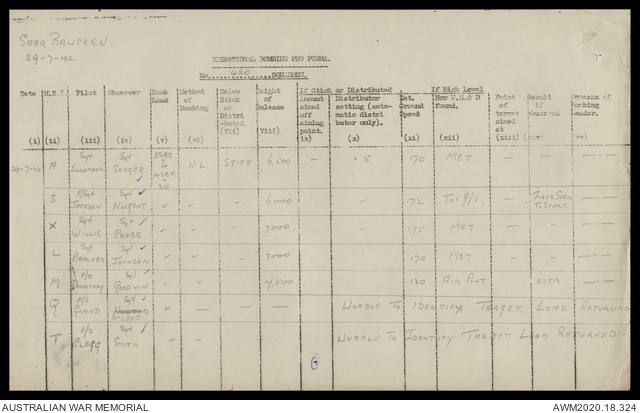 SAAR BRUCKEN.
29-7-42
OPERATIONAL BOMBING PRO FORMA.
No. 460 SQUADRON.
Date (i)
(ii)
Pilot (iii)
Observer (iv)
Bomb Load (v)
Method of Bombing (vi)
Salvo Stick or Distributed. (Vii)
Height of Release (Viii)
If Stick or Distributed
Amount aimed off aiming point. ix)
Distributor setting (automatic distributor only). (x)
Est. Ground Speed (xi)
If High Level
How W.S.& D found. (xii)
Point of target aimed at (xiii)
Result if observed (xiv)
Remarks of Bombing Leader. xv)
29-7-42 A Sgt Solomons Sgt H.L. STICK 6,500 — 5 170 MET — — —
S F/Sgt JACKSON Sgt NUGENT 6000 172 FIRES SEEN TO START
X Sgt WILLIS Sgt 7000 175 MET — — —
L Sgt Sgt JOHNSON 7000 170 MET — — —
M P/O Sgt GOODWIN 4,500 180 AIR PLOT
Q P/S Sgt — — — UNABLE TO IDENTIFY TARGET. LOAD RETURNED
T P/O CLEGG Sgt SMITH UNABLE TO IDENTIFY TARGET LOAD RETURNED.
AUSTRALIAN WAR MEMORIAL
AWM2020.18.324